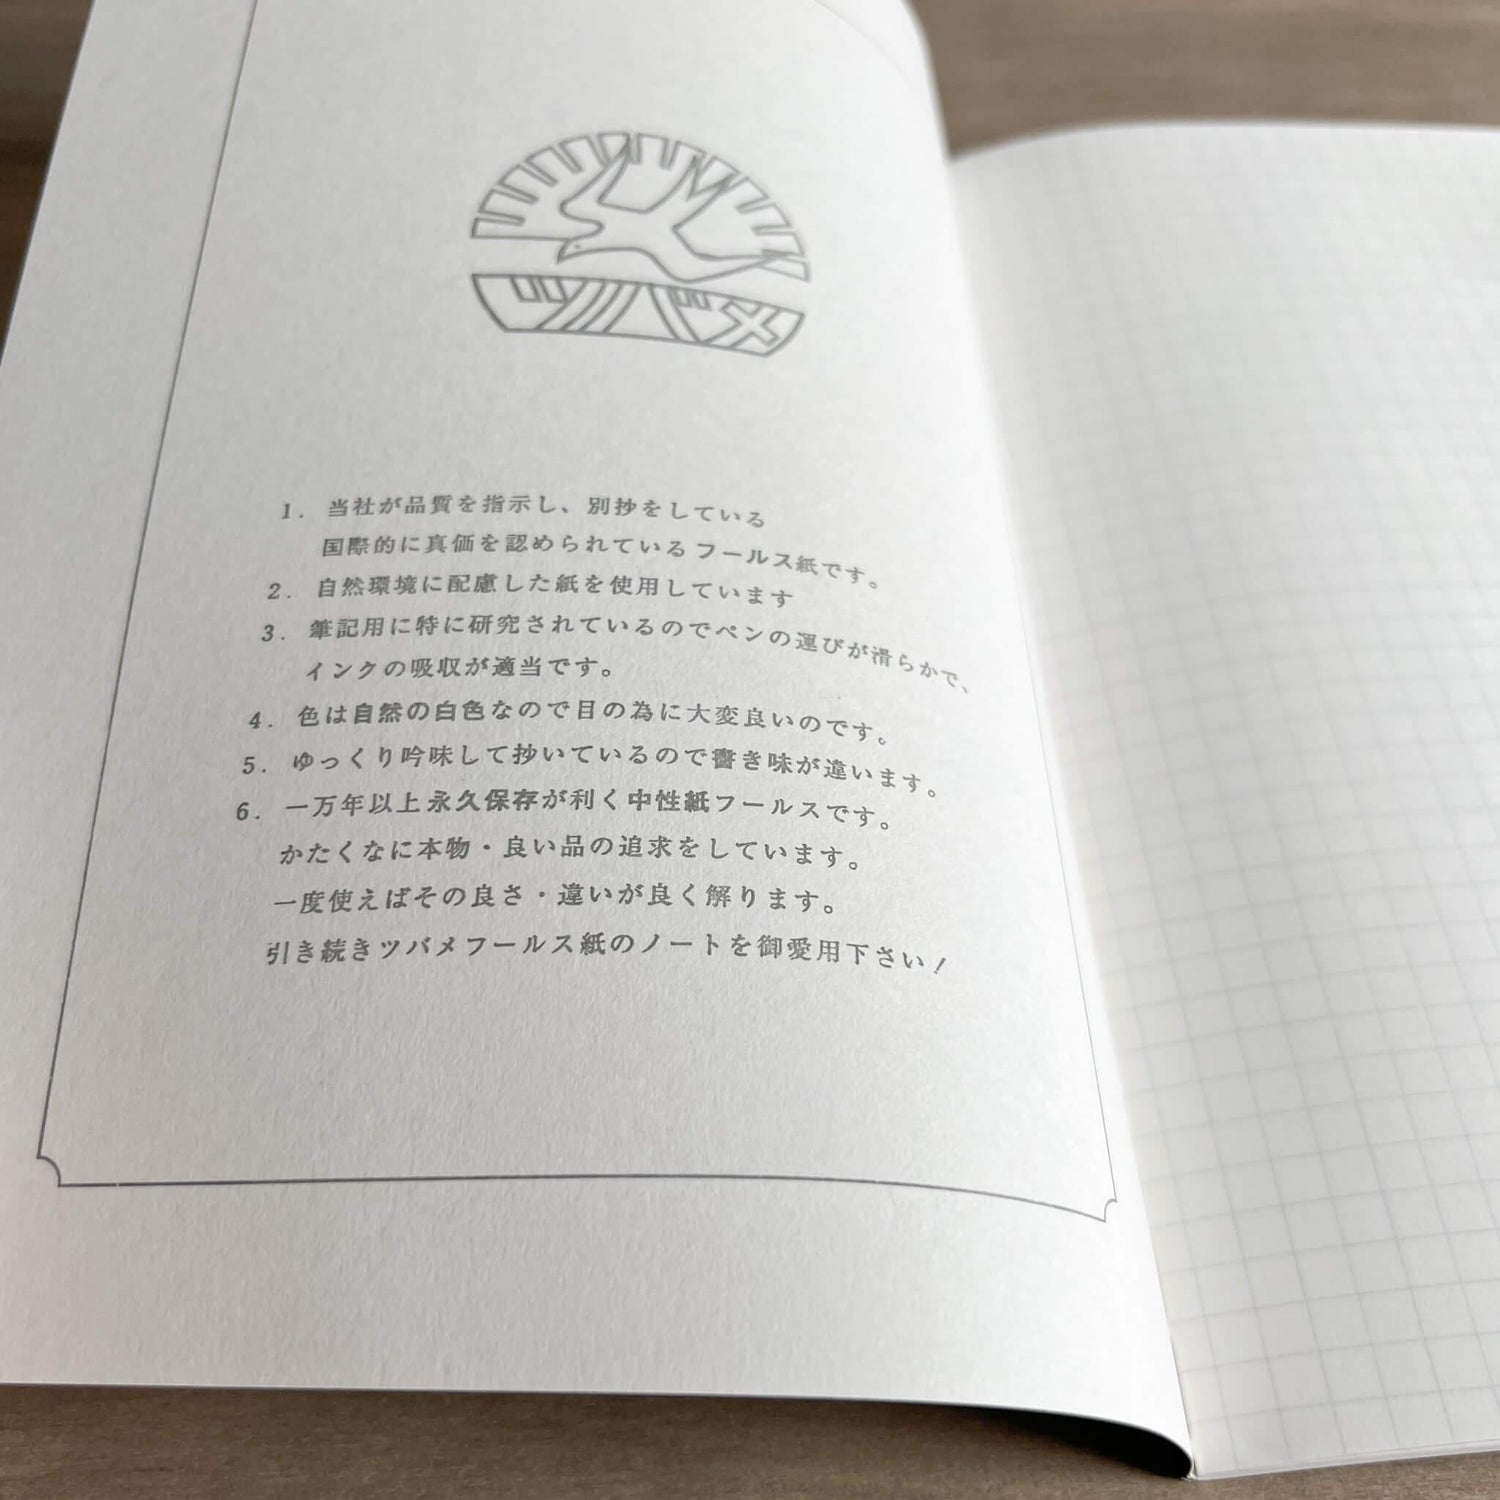 ツバメ
1. 当社が品質を指示し、別抄をしている
国際的に真価を認められているフールス紙です。
2. 自然環境に配慮した紙を使用しています
3. 筆記用に特に研究されているのでペンの運びが滑らかで、
インクの吸収が適当です。
4. 色は自然の白色なので目の為に大変良いのです。
5. ゆっくり吟味して抄いているので書き味が違います。
6. 一万年以上永久保存が利く中性紙フールスです。
かたくなに本物・良い品の追求をしています。
一度使えばその良さ・違いが良く解ります。
引き続きツバメフールス紙のノートを御愛用下さい！